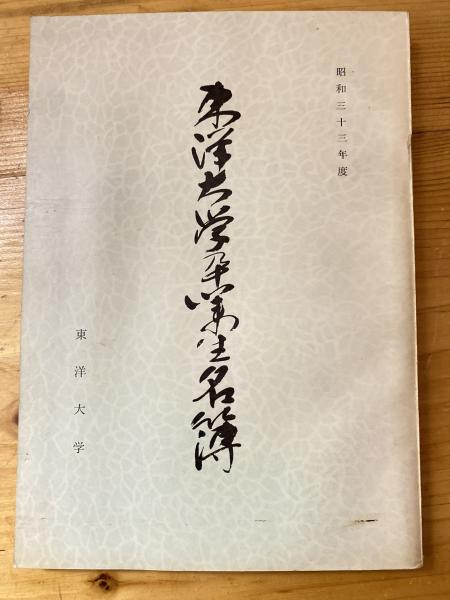 昭和三十三年度
東洋大学卒業生名簿
東洋大学